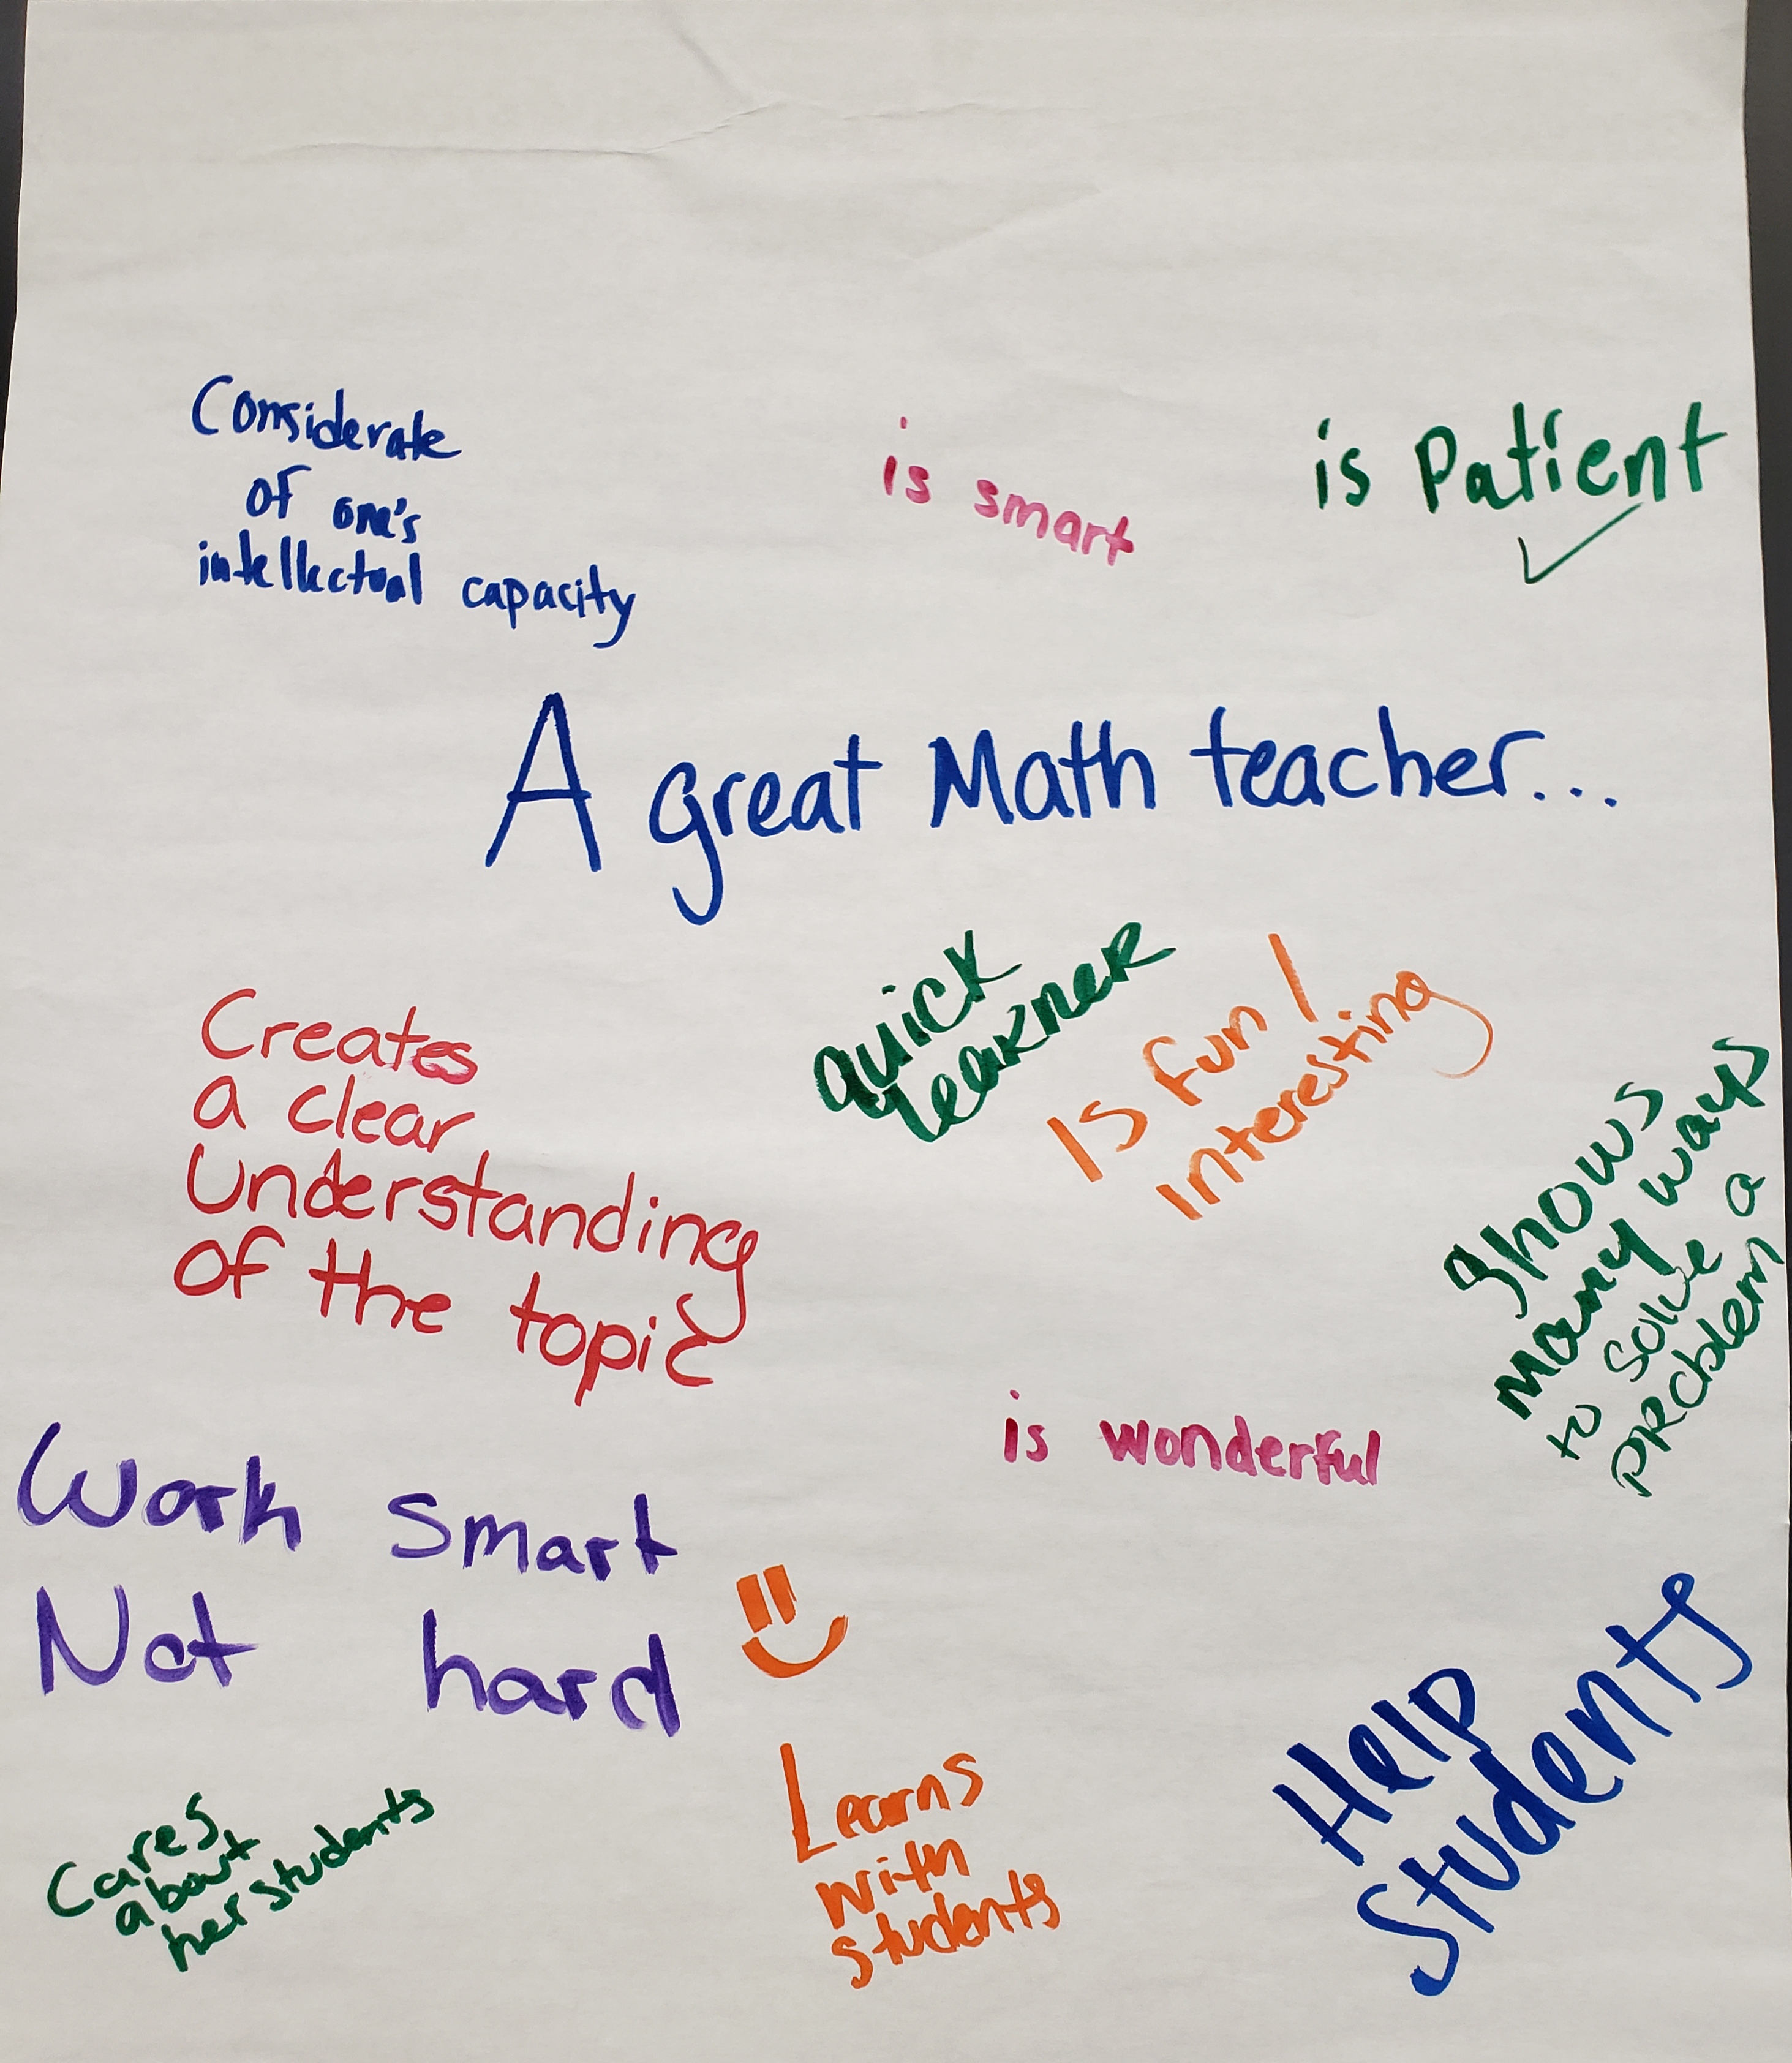 Considerate
of one's
intellectual capacity
is smart
is Patient
A great Math teacher...
Creates
a clear
Understanding
of the topic
quick
learner
Is fun!
Interesting
Shows
many ways
to solve a
problem
is wonderful
Work smart
Not hard
Cares
about
her students
Learns
with
students
Help
Students